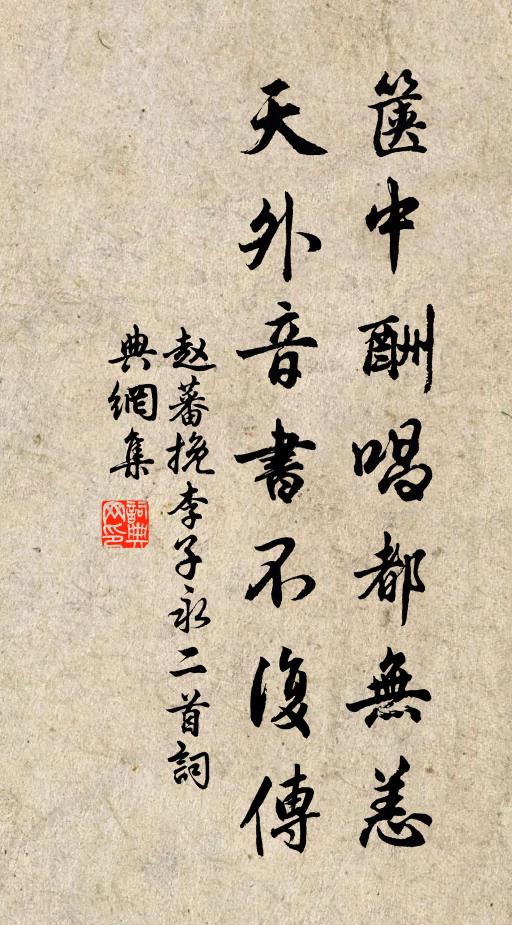 篋中酬唱都無恙
天外音書不復傳
赵蕃挽李子永二首詞
典網集
詞典
网印